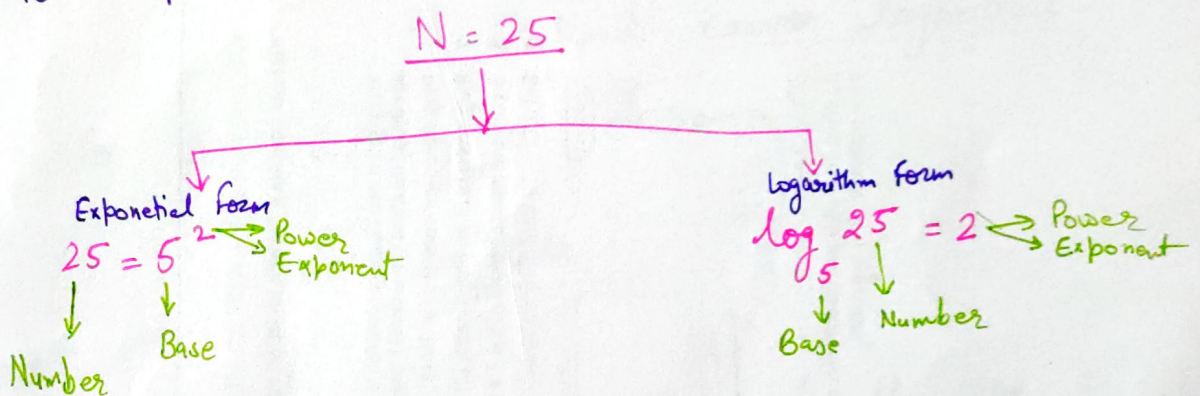 N = 25
Exponetial Form
25 = 5²
Power
Exponent
Number
Base
Logarithm Form
log₅ 25 = 2
Power
Exponent
Number
Base